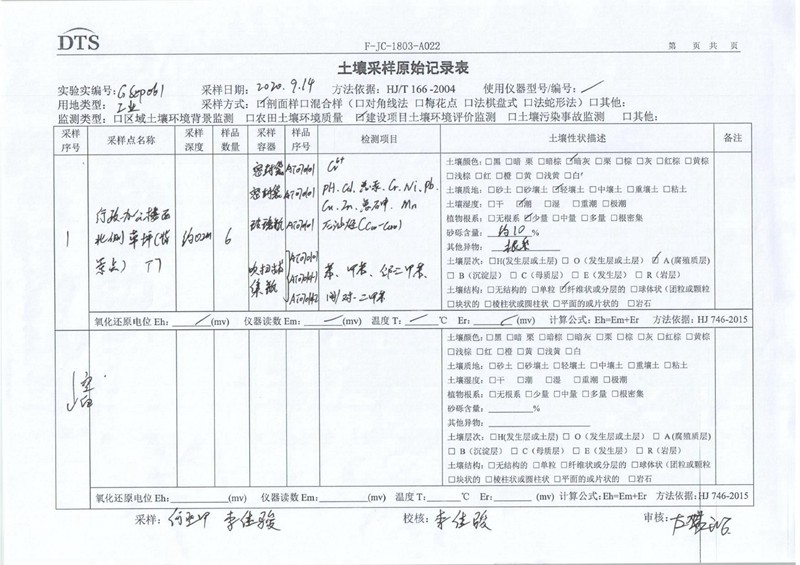 DTS
F-JC-1803-A022
第 页 共 页
土壤采样原始记录表
实验室编号: 采样日期: 2020.9.14 方法依据: HJ/T 166-2004 使用仪器型号/编号:
用地类型: 工业 采样方式: ☑剖面样□混合样(□对角线法 □梅花点 □法棋盘式 □法蛇形法) □其他:
监测类型: □区域土壤环境背景监测 □农田土壤环境质量 ☑建设项目土壤环境评价监测 □土壤污染事故监测 □其他:
采样序号 采样点名称 采样深度 样品数量 采样容器 样品序号 检测项目 土壤性状描述 备注
1
行政办公楼西
北侧草坪(背
景点) T7
约0.2m
6
密封袋 Cr6+
密封袋 PH、Cd、总汞、Cr、Ni、Pb、
Cu、Zn、总砷、Mn
玻璃瓶 石油烃(C10-C40)
吹扫捕
集瓶
苯、甲苯、邻二甲苯
间、对-二甲苯
土壤颜色: □黑 □暗 栗 □暗棕 ☑暗灰 □栗 □棕 □灰 □红棕 □黄棕
□浅棕 □红 □橙 □黄 □浅黄 □白
土壤质地: □砂土 □砂壤土 ☑轻壤土 □中壤土 □重壤土 □粘土
土壤湿度: □干 ☑潮 □湿 □重潮 □极潮
植物根系: □无根系 ☑少量 □中量 □多量 □根密集
砂砾含量: 约10 %
其他异物: 根系
土壤层次: □H(发生层或土层) □O(发生层或土层) ☑A(腐殖质层)
□B(沉淀层) □C(母质层) □E(发生层) □R(岩层)
土壤结构: □无结构的 □单粒 ☑纤维状或分层的 □球体状(团粒或颗粒
□块状的 □棱柱状或圆柱状 □平面的或片状的 □岩石
氧化还原电位 Eh: (mv) 仪器读数 Em: (mv) 温度 T: ℃ Er: (mv) 计算公式: Eh=Em+Er 方法依据: HJ 746-2015
空白
土壤颜色: □黑 □暗 栗 □暗棕 □暗灰 □栗 □棕 □灰 □红棕 □黄棕
□浅棕 □红 □橙 □黄 □浅黄 □白
土壤质地: □砂土 □砂壤土 □轻壤土 □中壤土 □重壤土 □粘土
土壤湿度: □干 □潮 □湿 □重潮 □极潮
植物根系: □无根系 □少量 □中量 □多量 □根密集
砂砾含量: %
其他异物:
土壤层次: □H(发生层或土层) □O(发生层或土层) □A(腐殖质层)
□B(沉淀层) □C(母质层) □E(发生层) □R(岩层)
土壤结构: □无结构的 □单粒 □纤维状或分层的 □球体状(团粒或颗粒
□块状的 □棱柱状或圆柱状 □平面的或片状的 □岩石
氧化还原电位 Eh: (mv) 仪器读数 Em: (mv) 温度 T: ℃ Er: (mv) 计算公式: Eh=Em+Er 方法依据: HJ 746-2015
采样: 李佳骏 校核: 李佳骏 审核: